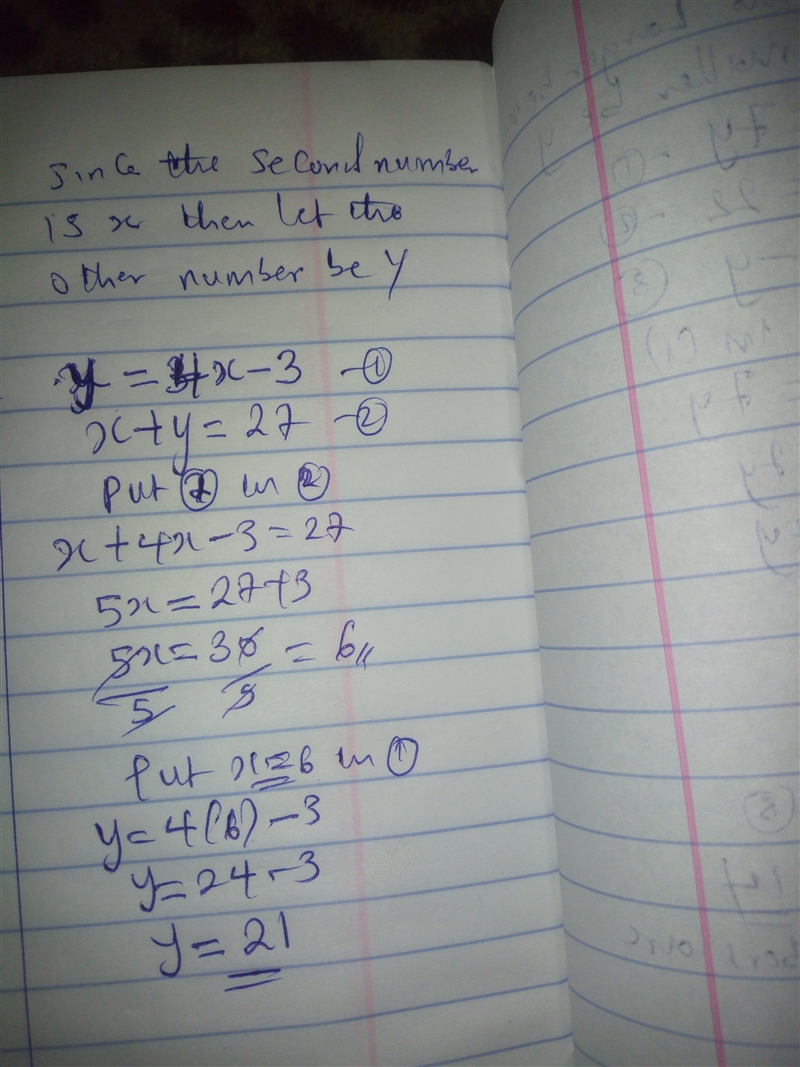 since the second number
is x then let the
other number be y
y = 4x - 3 - ①
x + y = 27 - ②
Put ① in ②
x + 4x - 3 = 27
5x = 27 + 3
5x = 30 = 6,,
5 5
Put x = 6 in ①
y = 4(6) - 3
y = 24 - 3
y = 21